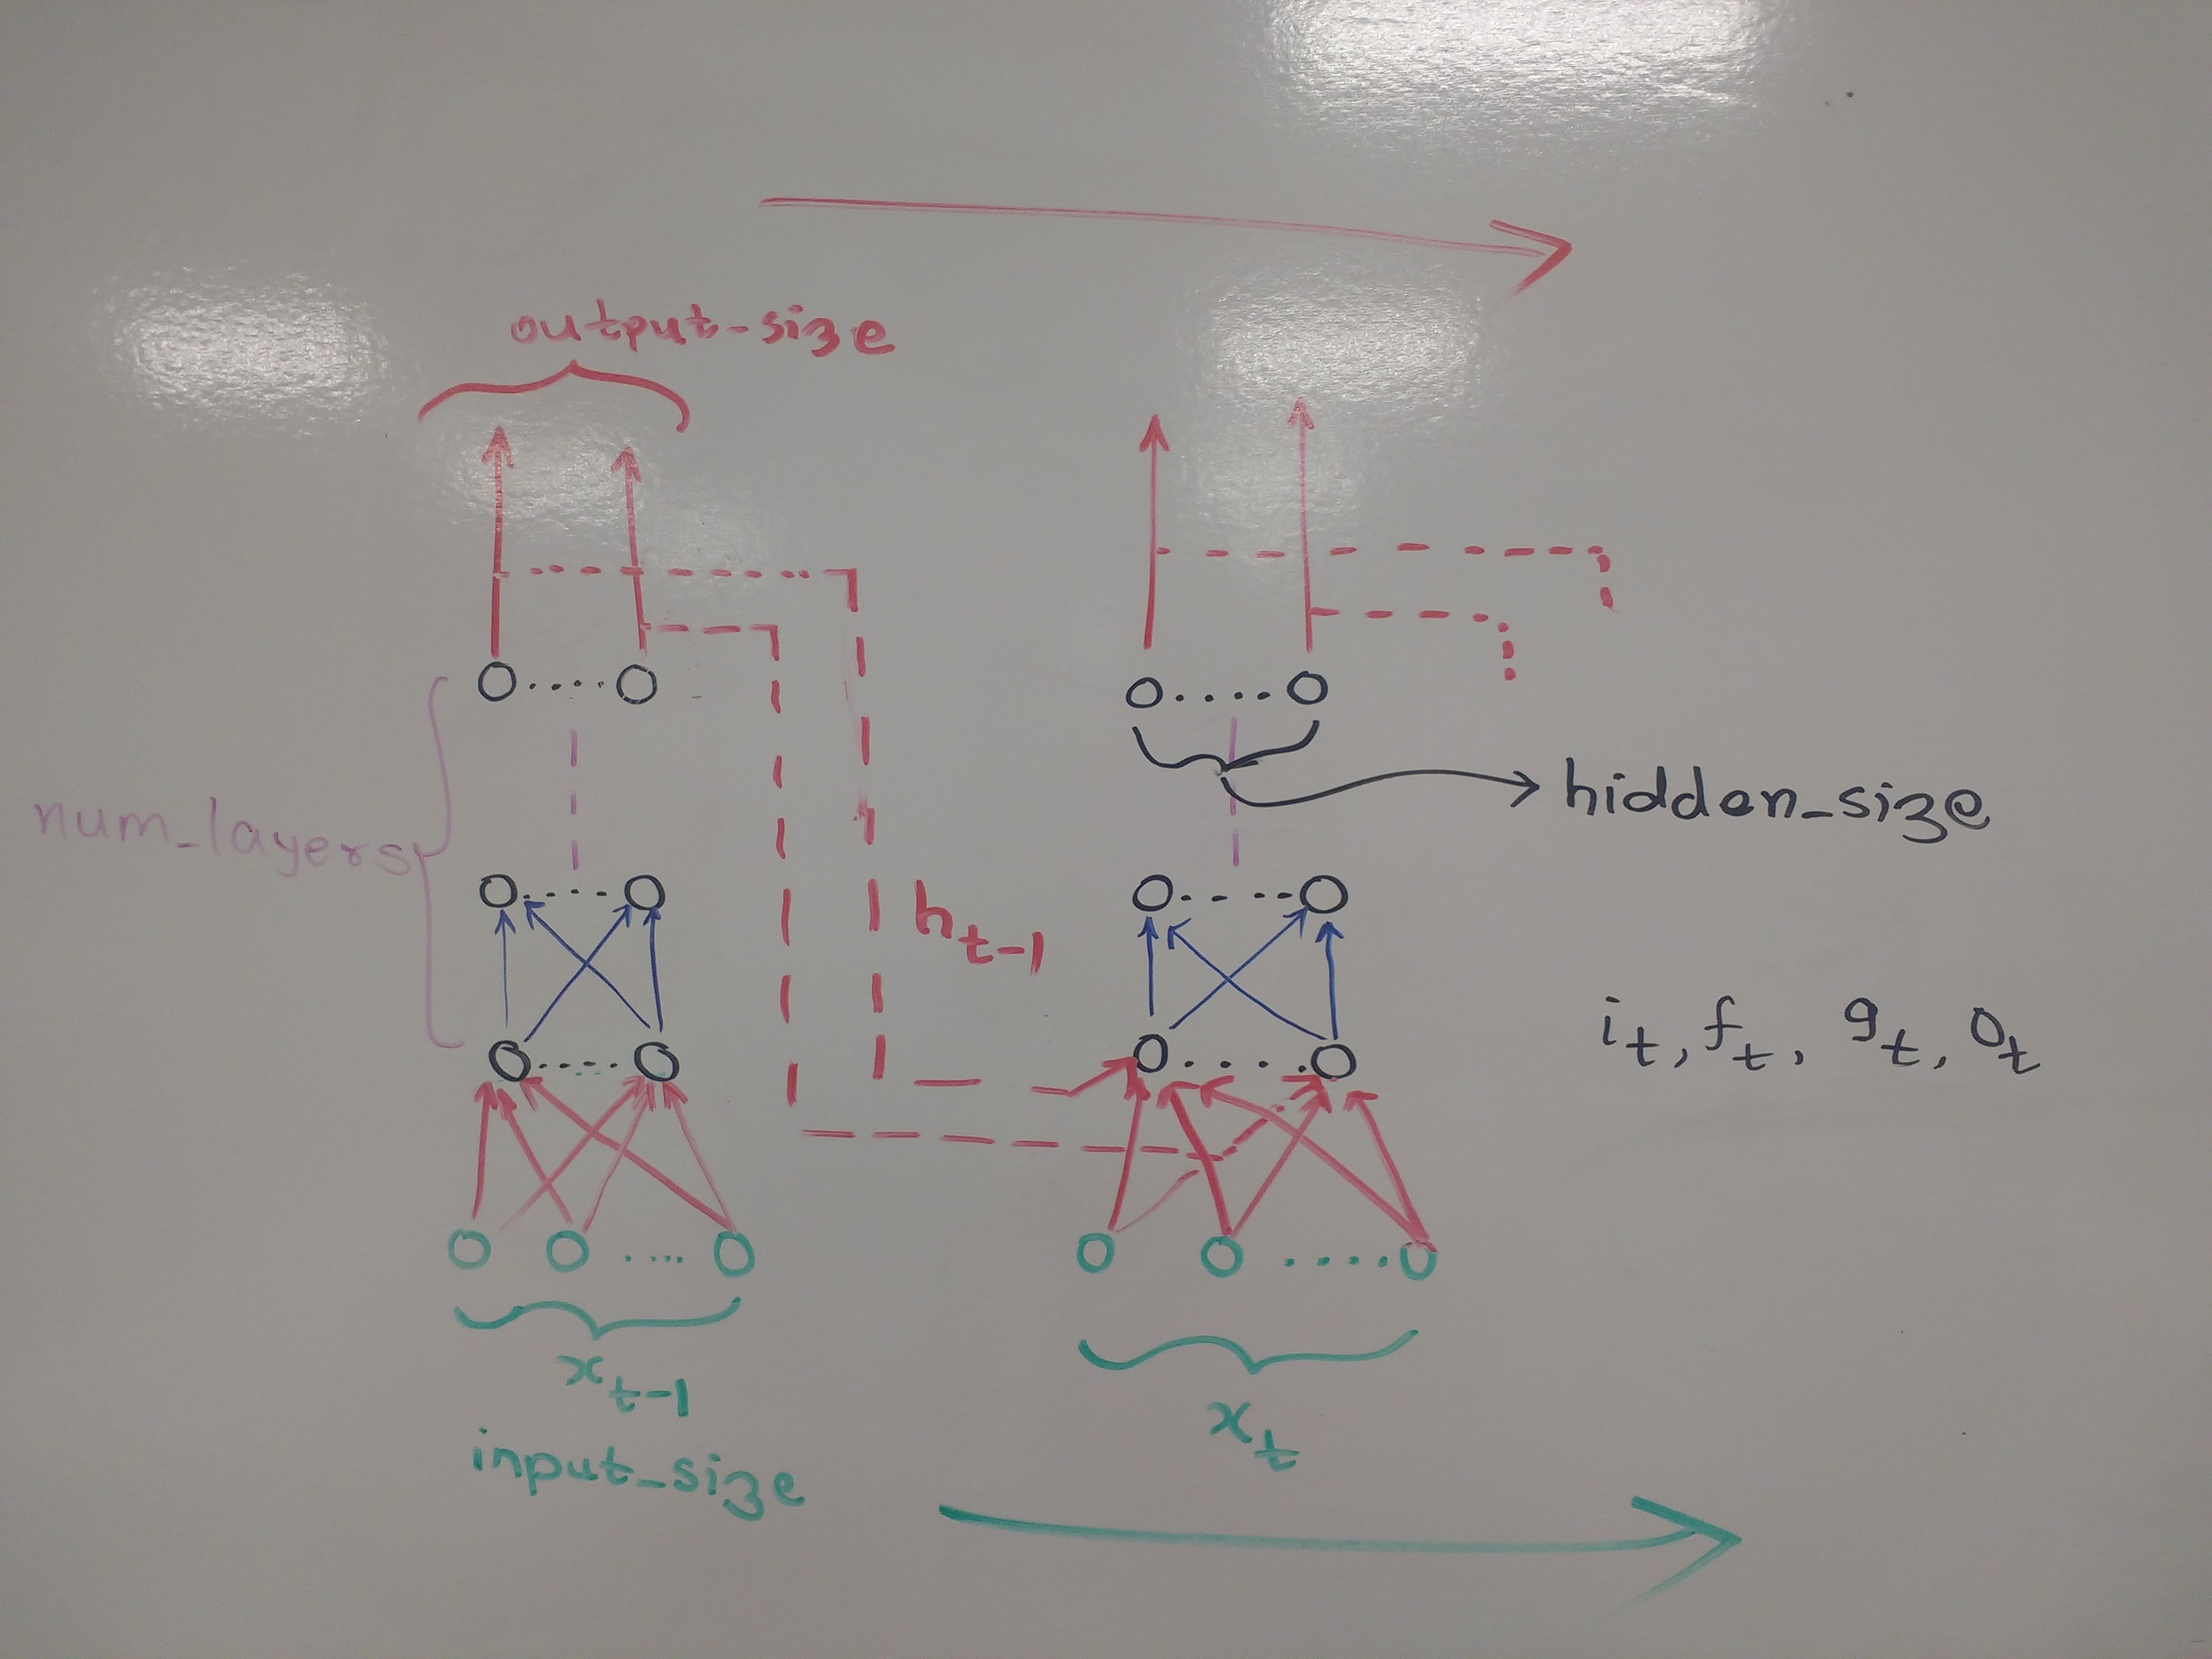 output-size
num_layers
hidden_size
h_t-1
i_t, f_t, g_t, o_t
x_t-1
x_t
input_size